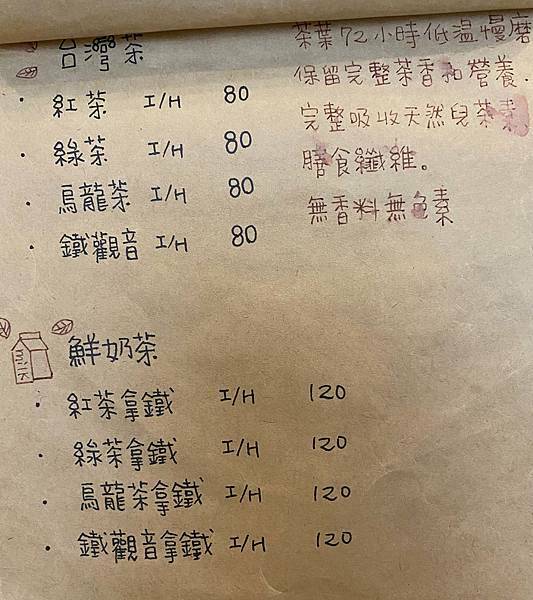 台灣茶
紅茶 I/H 80
綠茶 I/H 80
烏龍茶 I/H 80
鐵觀音 I/H 80
茶葉72小時低溫慢磨
保留完整茶香和營養.
完整吸收天然兒茶素
膳食纖維。
無香料無色素
milk
鮮奶茶
紅茶拿鐵 I/H 120
綠茶拿鐵 I/H 120
烏龍茶拿鐵 I/H 120
鐵觀音拿鐵 I/H 120